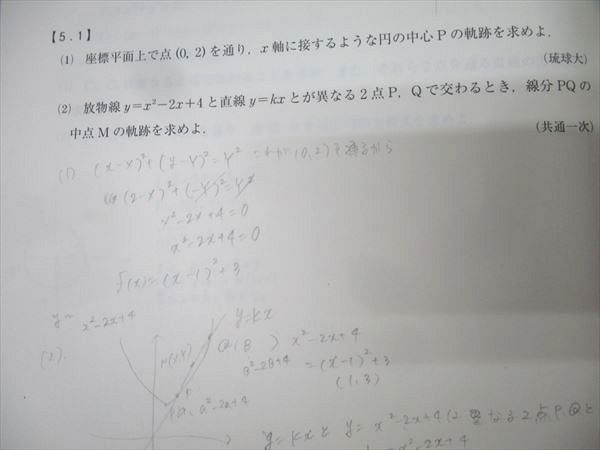 【5.1】
(1) 座標平面上で点(0, 2)を通り，x軸に接するような円の中心Pの軌跡を求めよ．
(琉球大)
(2) 放物線y=x²−2x+4と直線y=kxとが異なる2点P，Qで交わるとき，線分PQの
中点Mの軌跡を求めよ．
(共通一次)
(1) (x−X)²+(y−Y)²=Y² これが(0,2)を通るから
(2−X)²+(−Y)²=Y²
X²−2X+4=0
x²−2x+4=0
f(x)=(x−1)²+3
y=
x²−2x+4
y=kx
(2).
M(X,Y)
Q(β
β²−2β+4
)
x²−2x+4
=(x−1)²+3
(1,3)
α²−2α+4
y=kxと y=x²−2x+4は異なる2点P.Qと
x²−2x+4